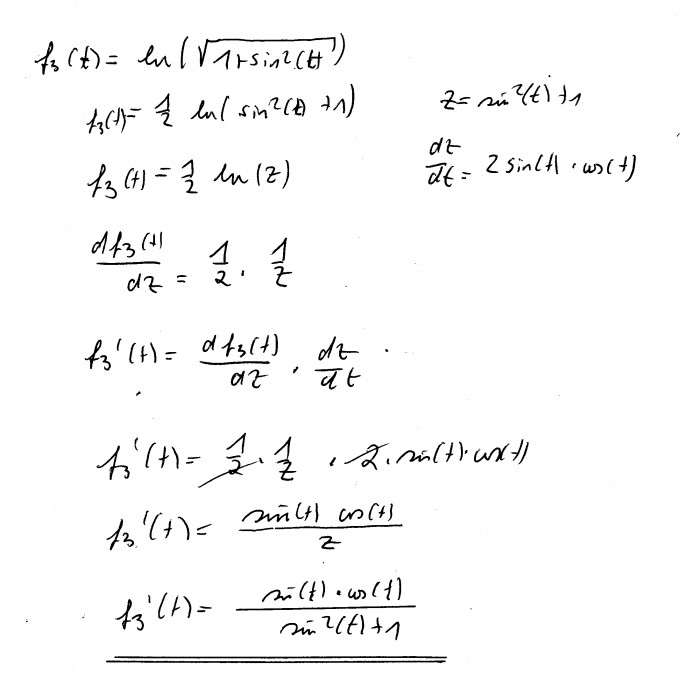 f₃(t) = ln(√(1+sin²(t)))
f₃(t) = 1/2 ln(sin²(t) + 1)
z = sin²(t) + 1
f₃(t) = 1/2 ln(z)
dz/dt = 2 sin(t) · cos(t)
df₃(t)/dz = 1/2 · 1/z
f₃'(t) = df₃(t)/dz · dz/dt
f₃'(t) = 1/2 · 1/z · 2 · sin(t) · cos(t)
f₃'(t) = sin(t) cos(t)/z
f₃'(t) = sin(t) · cos(t)/sin²(t) + 1